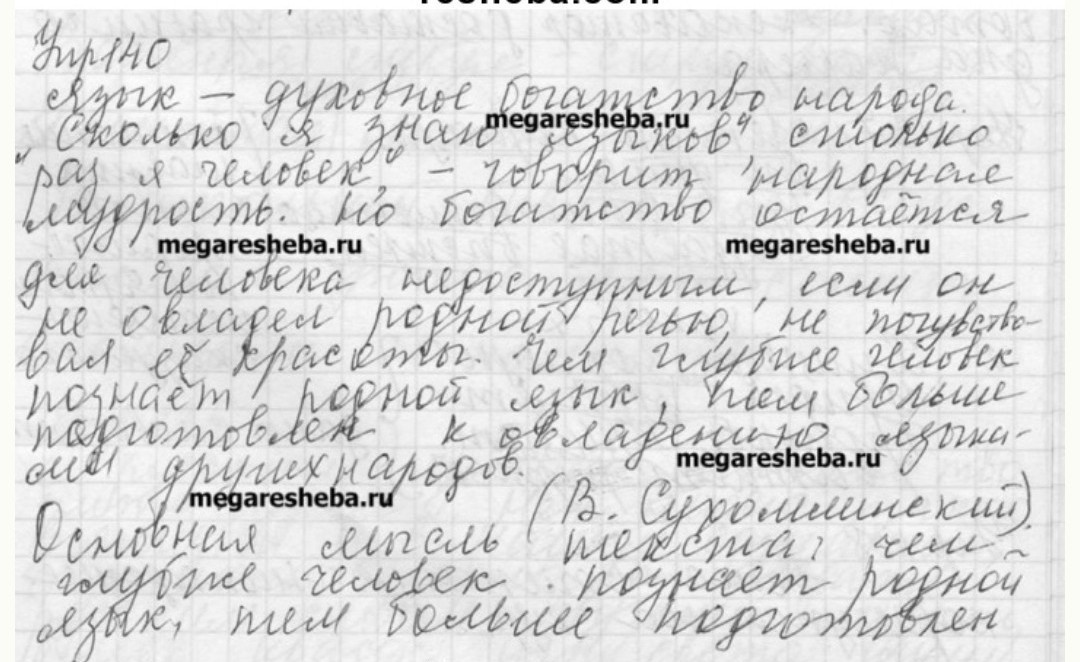 resheba.com
Упр140
Язык – духовное богатство народа.
megaresheba.ru
"Сколько я знаю языков, столько
раз я человек," – говорит народная
мудрость. Но богатство остаётся
megaresheba.ru megaresheba.ru
для человека недоступным, если он
не овладел родной речью, не почувство-
вал её красоты. Чем глубже человек
познаёт родной язык, тем больше
подготовлен к овладению языка-
ми других народов.
megaresheba.ru
megaresheba.ru
(В. Сухомлинский).
Основная мысль текста: чем
глубже человек познает родной
язык, тем больше подготовлен